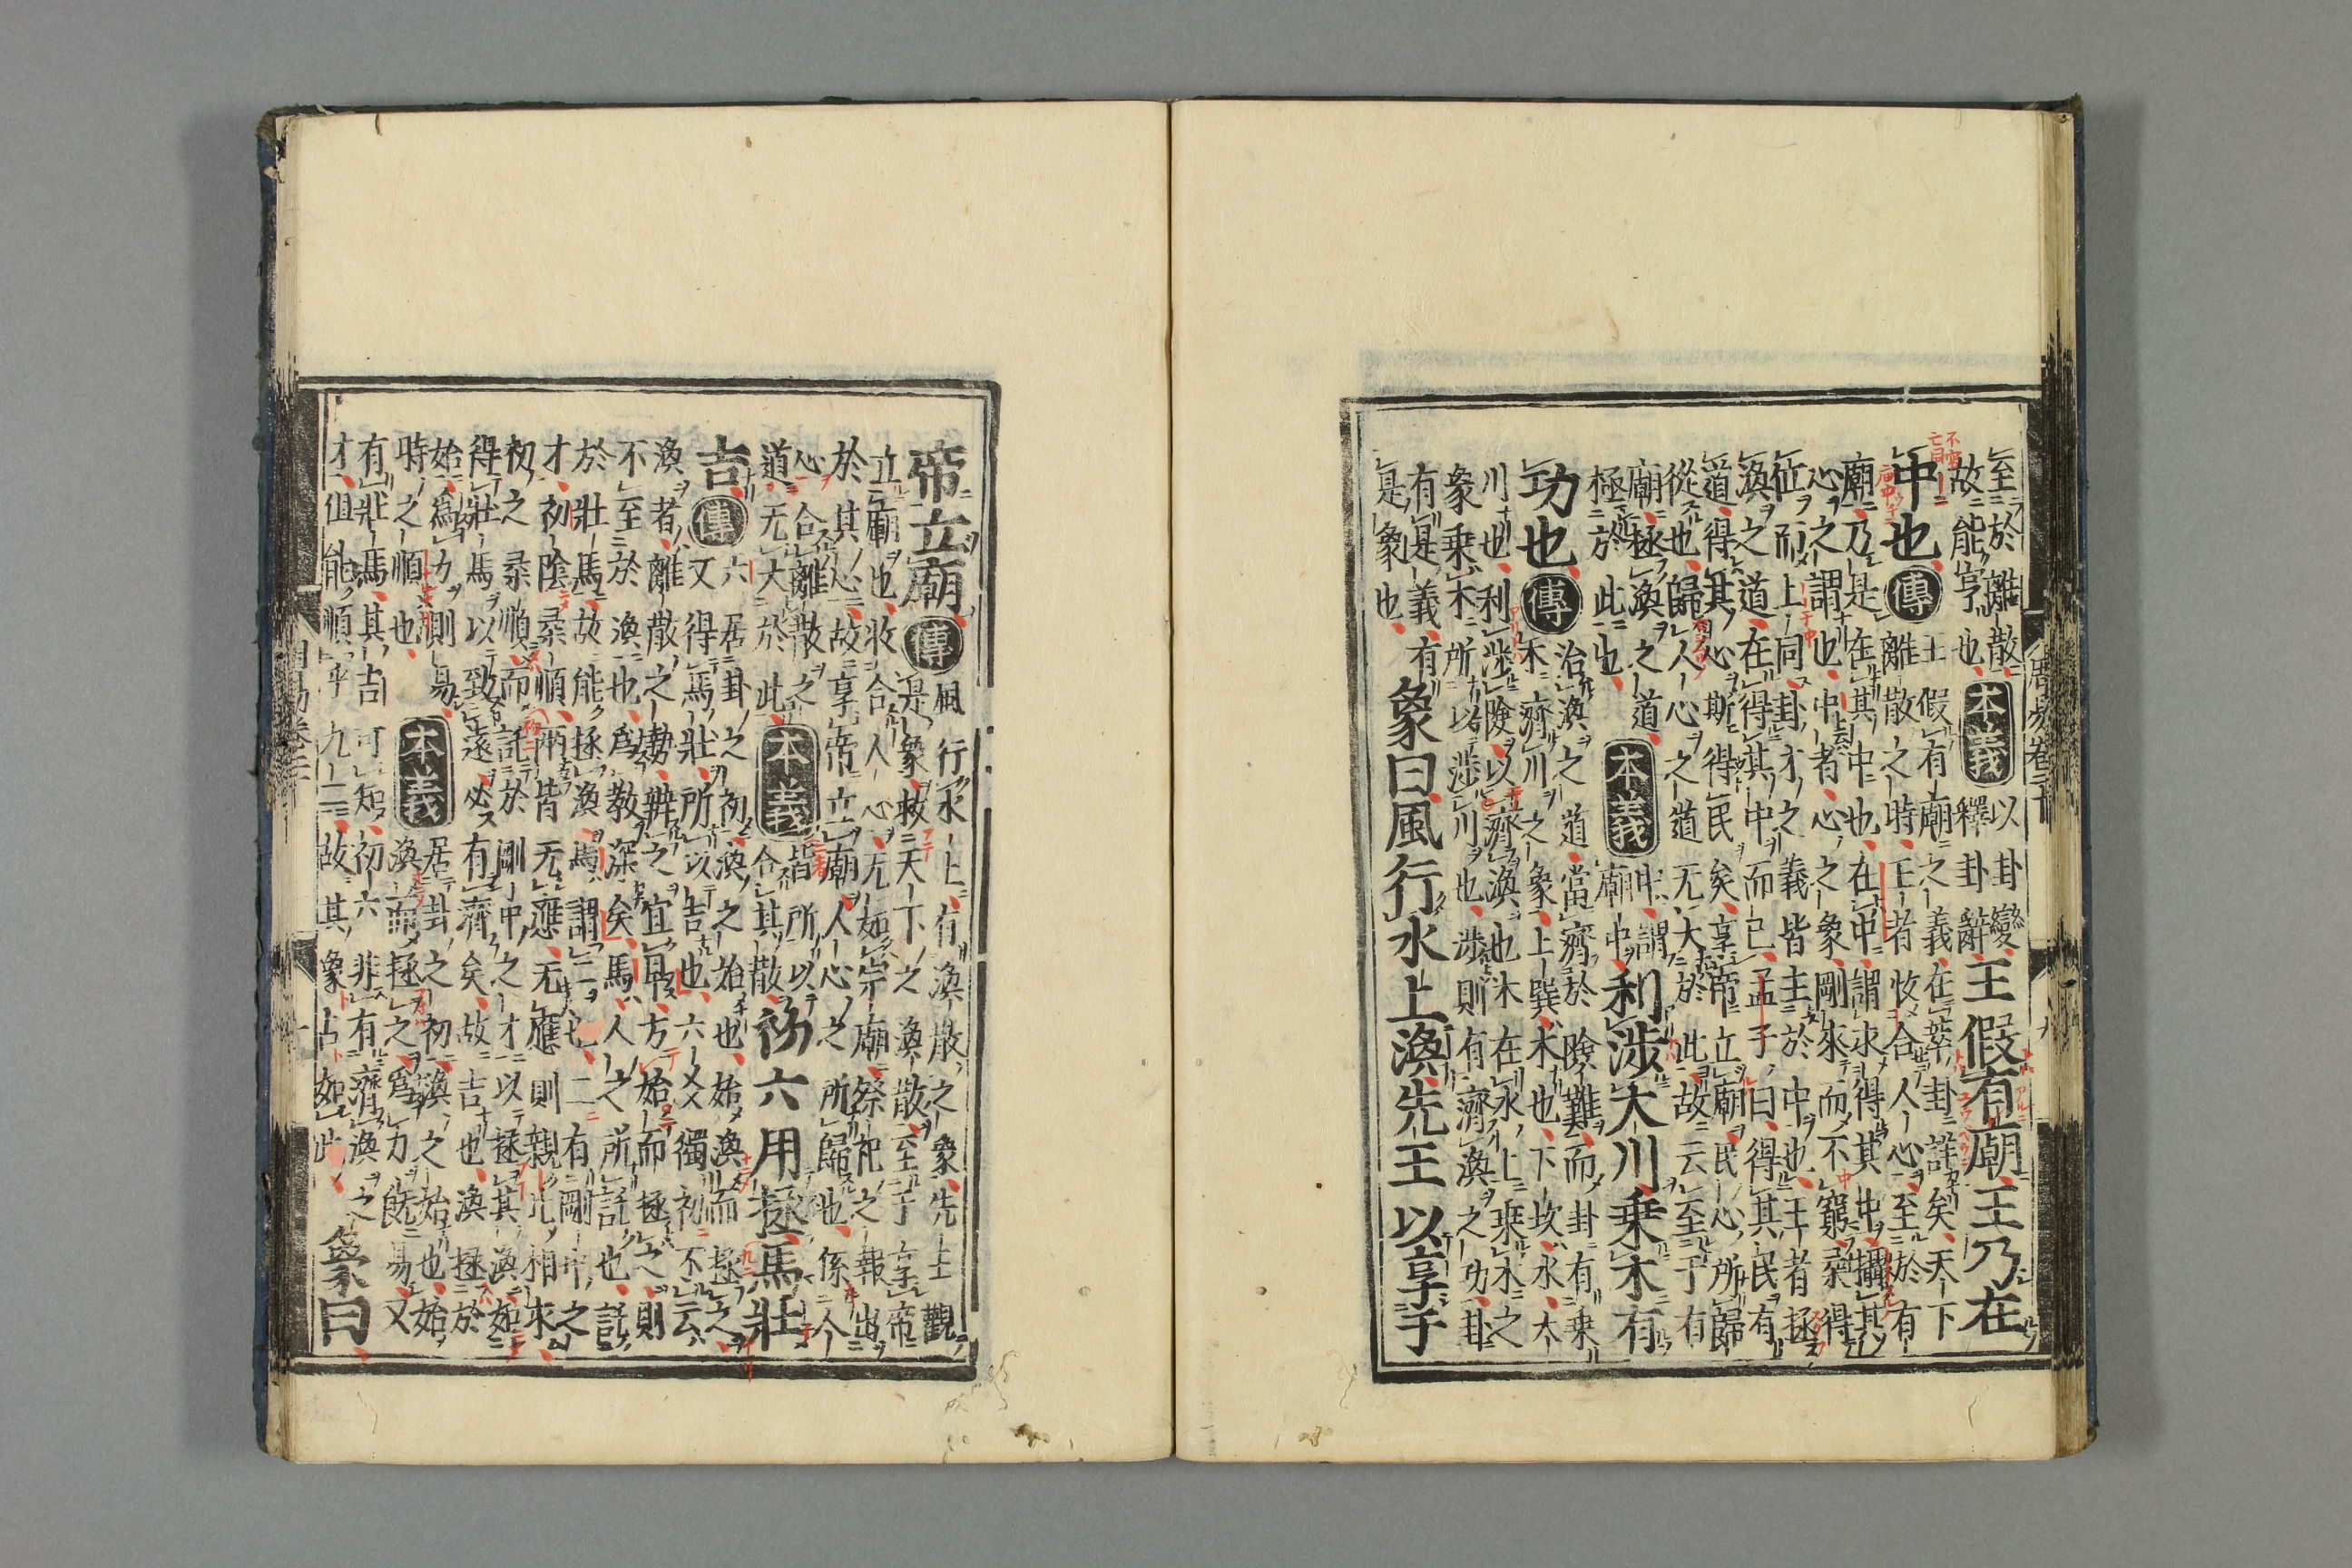 至於離散
故能亨也
本義
以卦變
釋卦辭
王假有廟王乃在
中也
傳
王假有廟之義在萃卦詳矣天下
離散之時王者收合人心至於有
廟乃是在其中也在中謂求得其中攝其
心之謂也中者心之象剛來而不窮柔得
位而上同卦才之義皆主於中也王者拯
渙之道在得其中而已孟子曰得其民有
道得其心斯得民矣享帝立廟民心所歸
從也歸人心之道无大於此故云至于有
廟拯渙之道
極於此也
本義
中謂
廟中
利涉大川乗木有
功也
傳
治渙之道當濟於險難而卦有乗
木濟川之象上巽木也下坎水大
川也利涉險以濟渙也木在水上乗木之
象乗木所以涉川也涉則有濟渙之功卦
有是義有
是象也
象曰風行水上渙先王以享于
帝立廟
傳
風行水上有渙散之象先王觀
是象救天下之渙散至于享帝
立廟也收合人心无如宗廟祭祀之報出
於其心故享帝立廟人心之所歸也係人
心合離散之
道无大於此
本義
皆所以
合其散
初六用拯馬壯
吉
傳
六居卦之初渙之始也始渙而拯之
又得馬壯所以吉也六爻獨初不云
渙者離散之勢辨之宜早方始而拯之則
不至於渙也爲教深矣馬人之所託也託
於壯馬故能拯渙馬謂二也二有剛中之
才初陰柔順兩皆无應无應則親比相求
初之柔順而託於剛中之才以拯其渙如
得壯馬以致遠必有濟矣故吉也渙拯於
始爲力則易
時之順也
本義
居卦之初渙之始也始
渙而拯之爲力既易又
有壯馬其吉可知初六非有濟渙之
才但能順乎九二故其象占如此
象曰